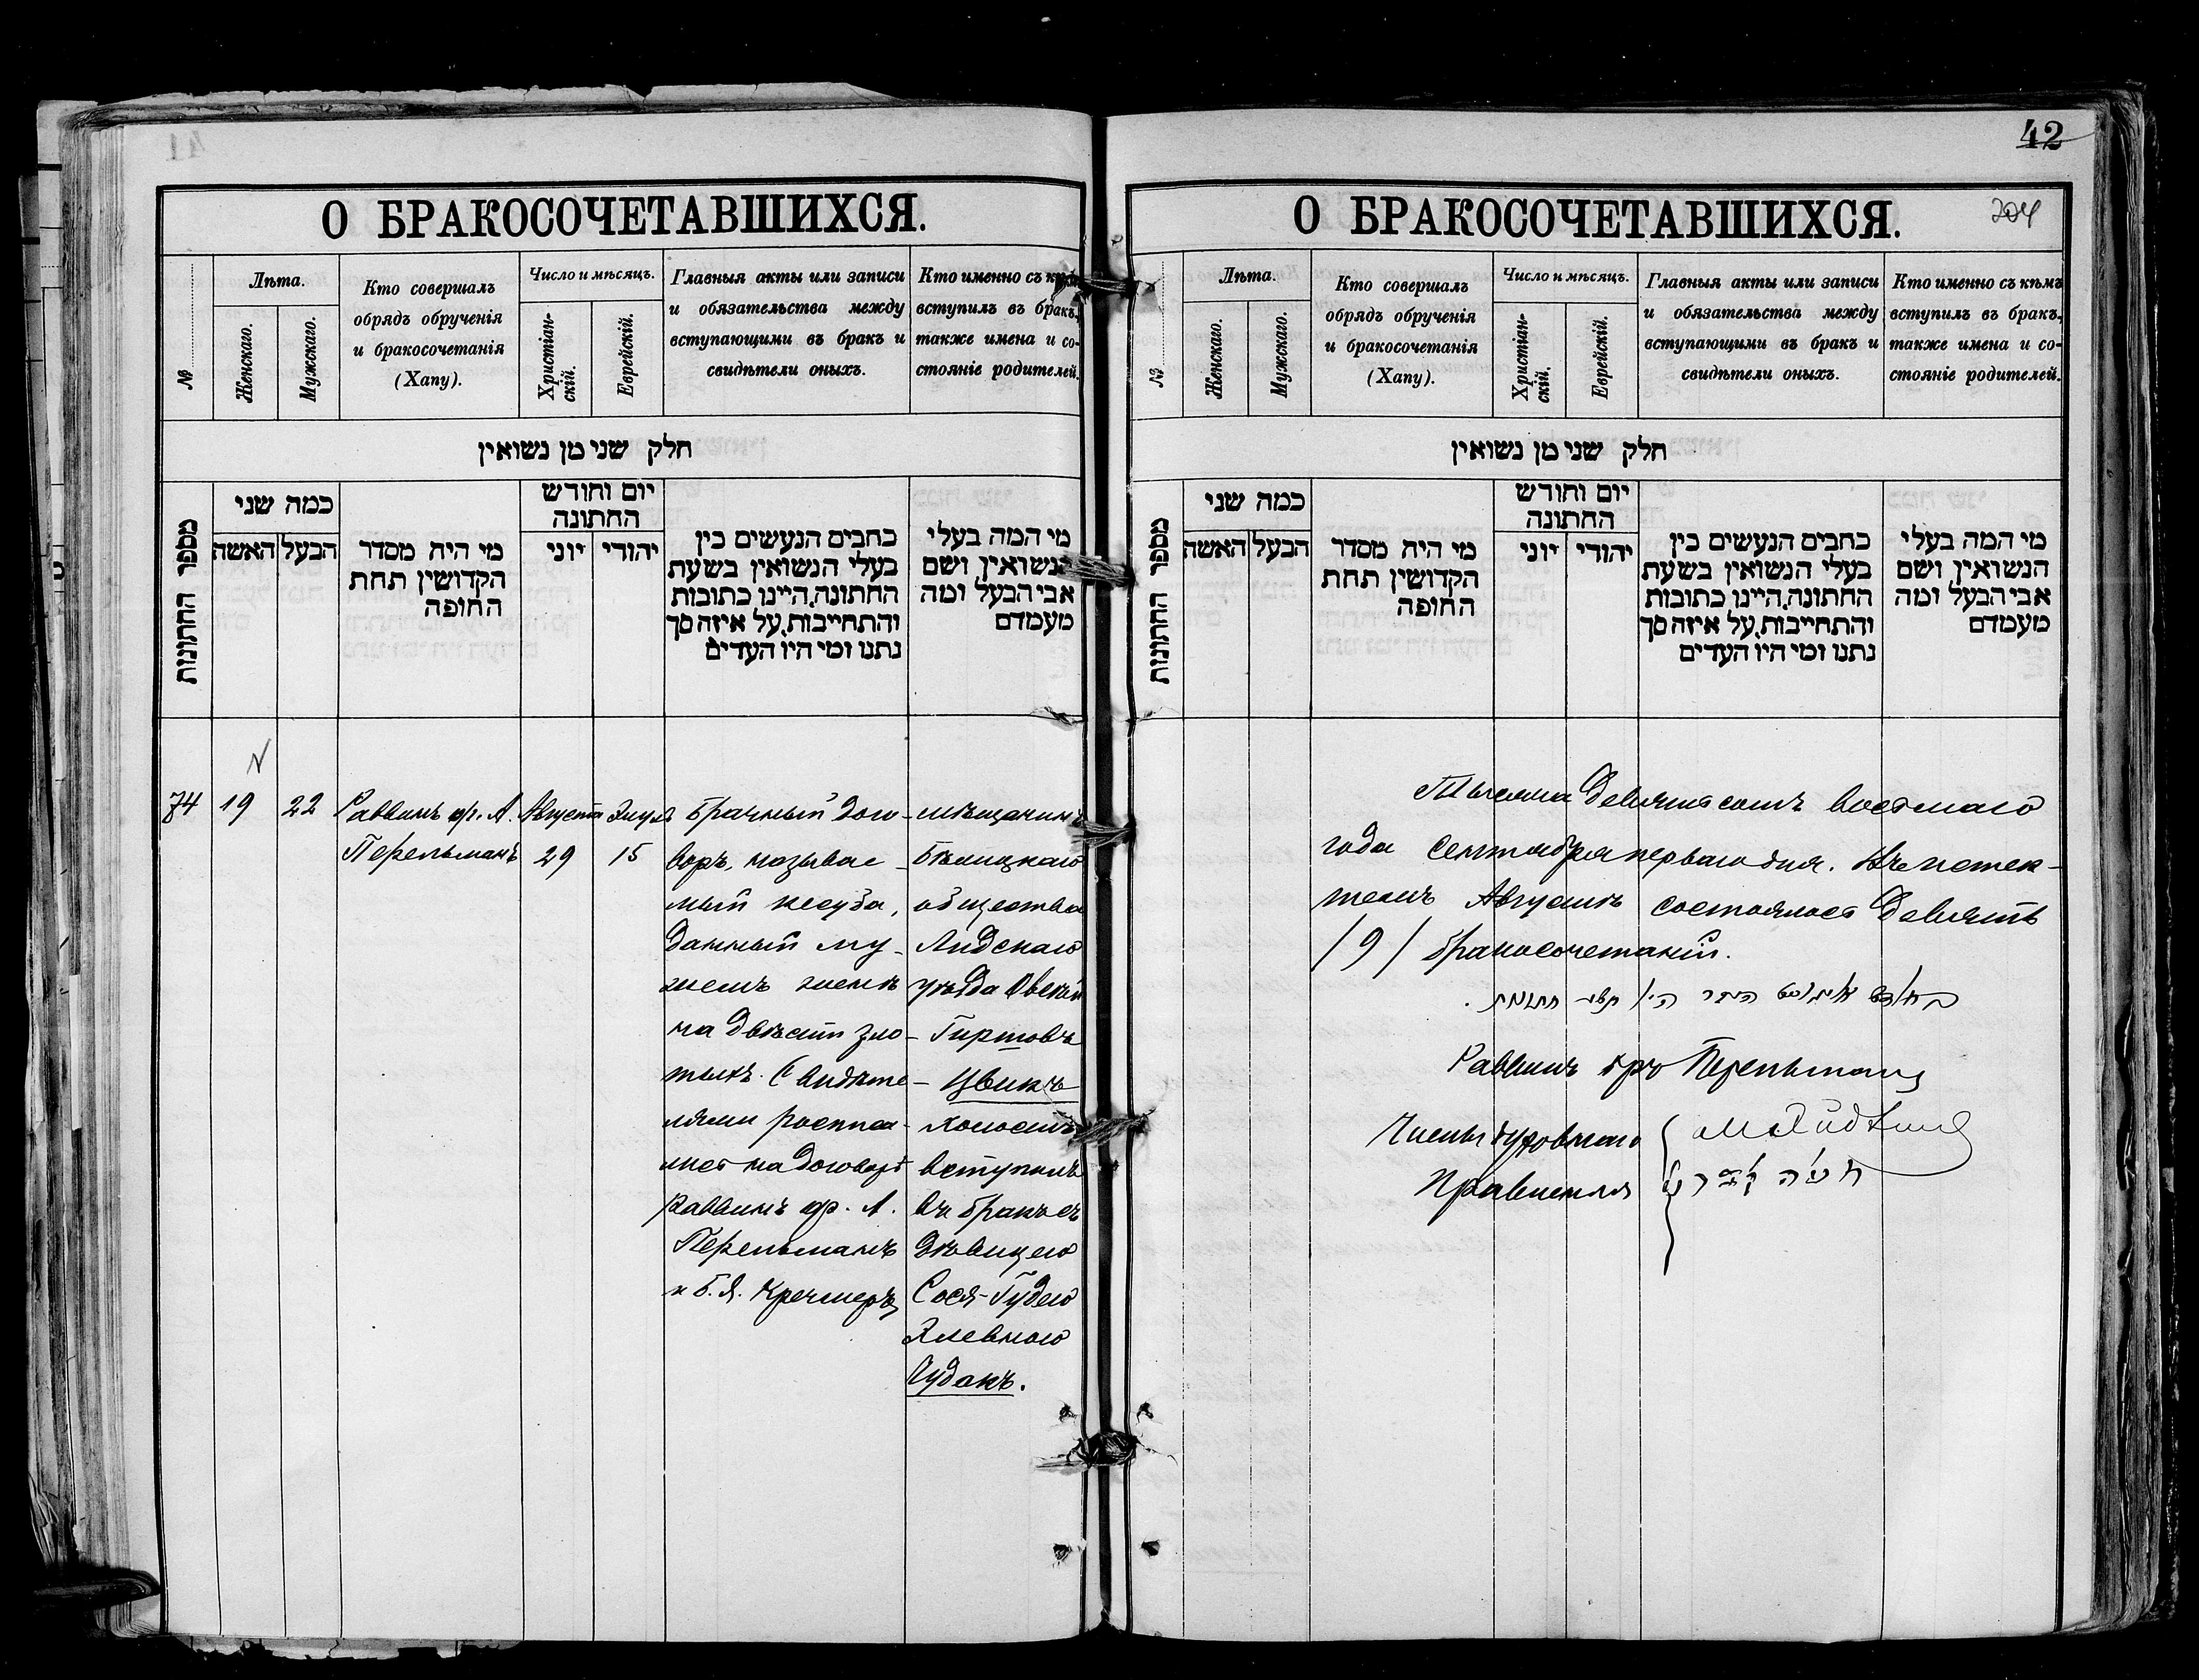 42
О БРАКОСОЧЕТАВШИХСЯ.
№
Лѣта.
Женскаго.
Мужскаго.
Кто совершалъ
обрядъ обрученія
и бракосочетанія
(Хапу).
Число и мѣсяцъ.
Христіан-
скій.
Еврейскій.
Главныя акты или записи
и обязательства между
вступающими въ бракъ и
свидѣтели оныхъ.
Кто именно съ кѣмъ
вступилъ въ бракъ,
также имена и со-
стояніе родителей.
חלק שני מן נשואין
מספר החתונות
כמה שני
האשה
הבעל
מי היה מסדר
הקדושין תחת
החופה
יום וחודש
החתונה
יוני
יהודי
כתבים הנעשים בין
בעלי הנשואין בשעת
החתונה, היינו כתובות
והתחייבות, על איזה סך
נתנו ומי היו העדים
מי המה בעלי
הנשואין ושם
אבי הבעל ומה
מעמדם
74
19
22
Раввинъ ф. А.
Перельманъ
Августа
29
Элулъ
15
Брачный дого-
воръ, называе-
мый кесуба,
данный му-
жемъ женѣ
на двѣсти зло-
тыхъ. Свидѣте-
лями росписа-
лись на договорѣ
Раввинъ ф. А.
Перельманъ
и Б. Я. Кремеръ
мѣщанинъ
Бѣлицкаго
общества
Лидскаго
уѣзда Овсѣй
Гиршовъ
Цвикъ
холостъ
вступилъ
въ бракъ съ
дѣвицею
Сося-Гудею
Элевною
Чудакъ.
О БРАКОСОЧЕТАВШИХСЯ.
204
№
Лѣта.
Женскаго.
Мужскаго.
Кто совершалъ
обрядъ обрученія
и бракосочетанія
(Хапу).
Число и мѣсяцъ.
Христіан-
скій.
Еврейскій.
Главныя акты или записи
и обязательства между
вступающими въ бракъ и
свидѣтели оныхъ.
Кто именно съ кѣмъ
вступилъ въ бракъ,
также имена и со-
стояніе родителей.
חלק שני מן נשואין
מספר החתונות
כמה שני
האשה
הבעל
מי היה מסדר
הקדושין תחת
החופה
יום וחודש
החתונה
יוני
יהודי
כתבים הנעשים בין
בעלי הנשואין בשעת
החתונה, היינו כתובות
והתחייבות, על איזה סך
נתנו ומי היו העדים
מי המה בעלי
הנשואין ושם
אבי הבעל ומה
מעמדם
Тысяча девятьсотъ восьмаго
года Сентября перваго дня. Въ истек-
шемъ Августѣ состоялось девять
/9/ бракосочетаній.
בחודש אויגוסט
Раввинъ Перельманъ
Члены духовнаго
Правленія